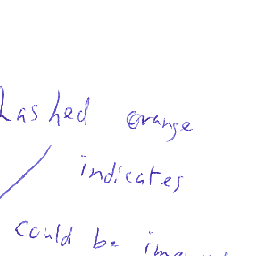 hashed orange
indicates
could be